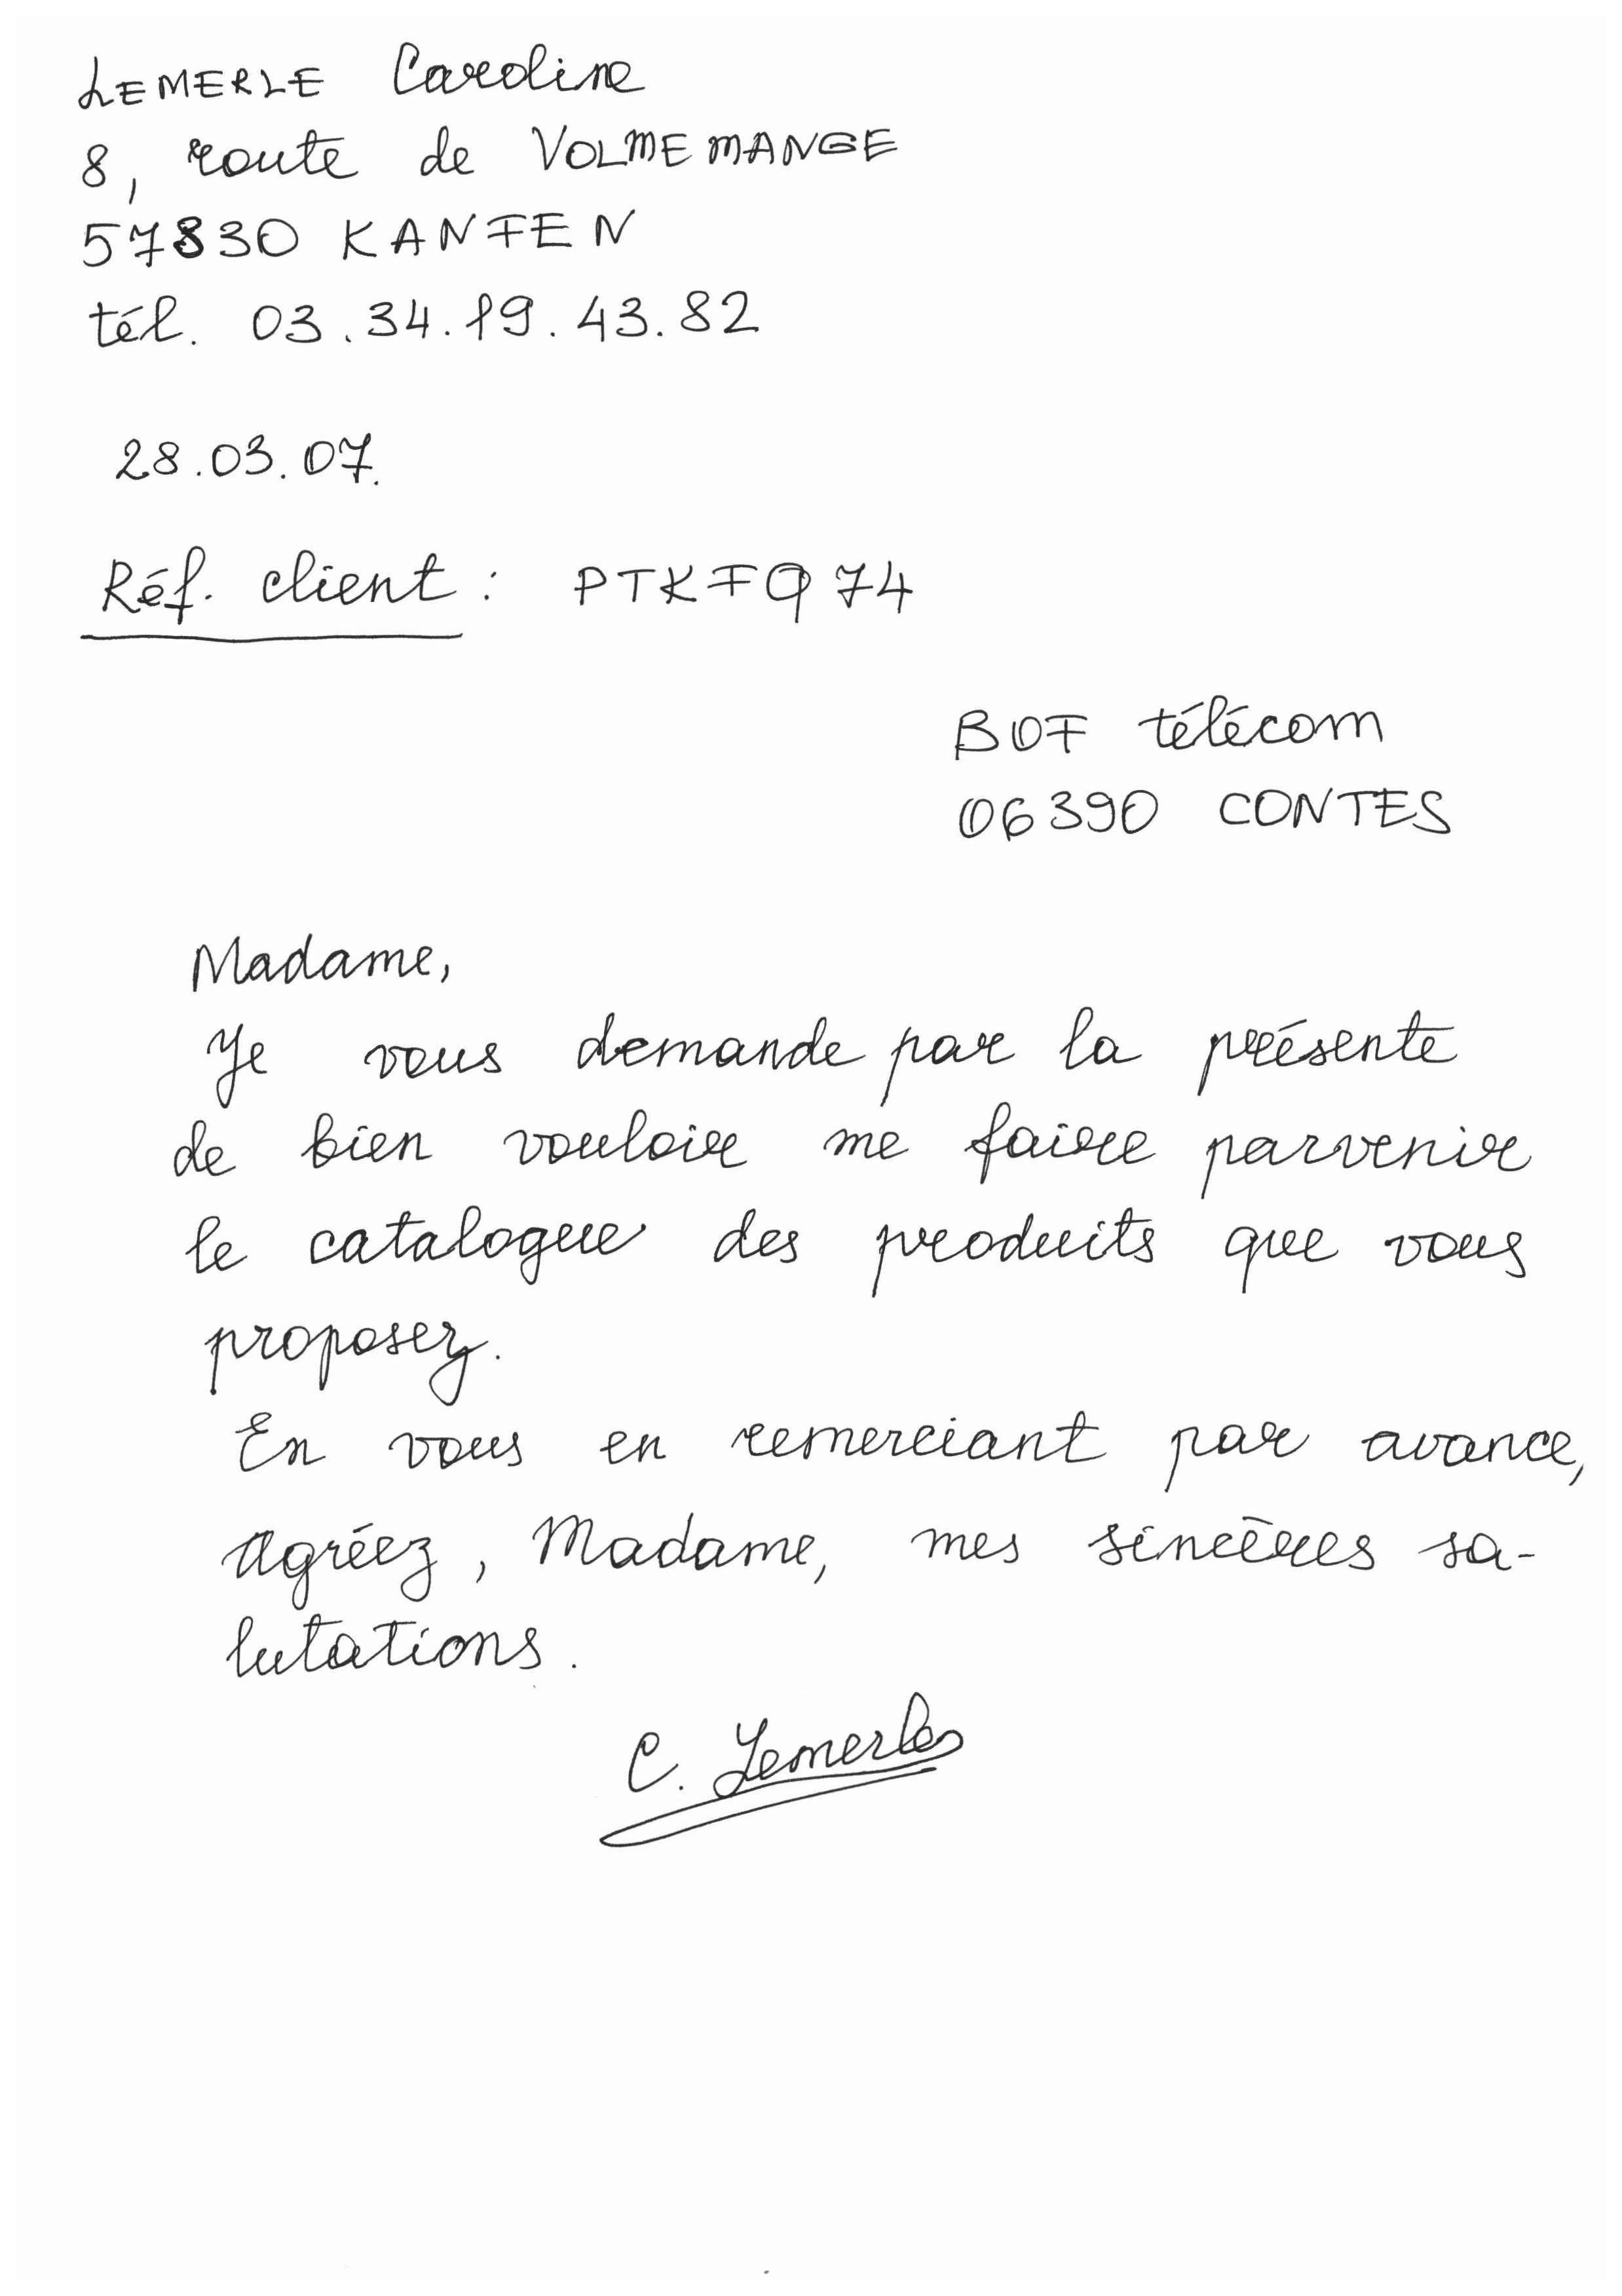 LEMERLE Caroline
8, route de VOLMEMANGE
57830 KANFEN
tél. 03.34.19.43.82
28.03.07.
Réf. client : PTKFQ74
BOF télécom
06390 CONTES
Madame,
Je vous demande par la présente
de bien vouloir me faire parvenir
le catalogue des produits que vous
proposez.
En vous en remerciant par avance,
agréez, Madame, mes sincères sa-
lutations.
C. Lemerle